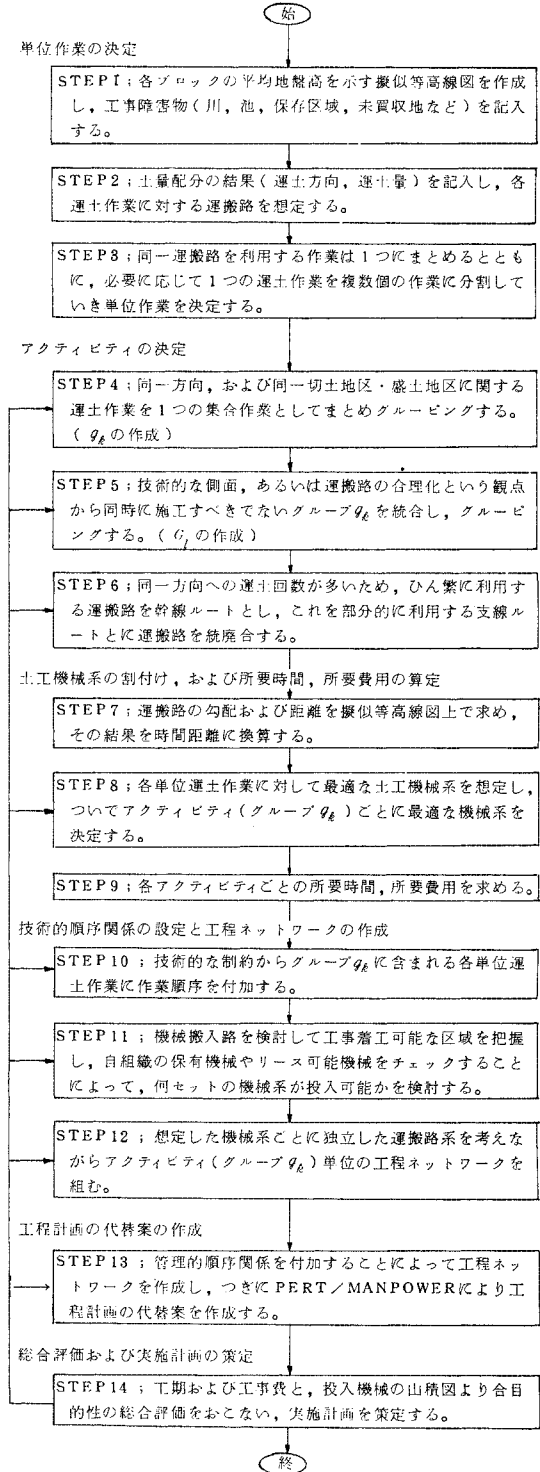 始
単位作業の決定
STEP1；各ブロックの平均地盤高を示す擬似等高線図を作成
し，工事障害物（川，池，保存区域，未買収地など）を記入
する。
STEP2；土量配分の結果（運土方向，運土量）を記入し，各
運土作業に対する運搬路を想定する。
STEP3；同一運搬路を利用する作業は1つにまとめるととも
に，必要に応じて1つの運土作業を複数個の作業に分割して
いき単位作業を決定する。
アクティビティの決定
STEP4；同一方向，および同一切土地区・盛土地区に関する
運土作業を1つの集合作業としてまとめグルーピングする。
（gkの作成）
STEP5；技術的な側面，あるいは運搬路の合理化という観点
から同時に施工すべきてないグループgkを統合し，グルーピ
ングする。（Glの作成）
STEP6；同一方向への運土回数が多いため，ひん繁に利用す
る運搬路を幹線ルートとし，これを部分的に利用する支線ル
ートとに運搬路を統廃合する。
土工機械系の割付け，および所要時間，所要費用の算定
STEP7；運搬路の勾配および距離を擬似等高線図上で求め，
その結果を時間距離に換算する。
STEP8；各単位運土作業に対して最適な土工機械系を想定し，
ついでアクティビティ（グループgk）ごとに最適な機械系を
決定する。
STEP9；各アクティビティごとの所要時間，所要費用を求める。
技術的順序関係の設定と工程ネットワークの作成
STEP10；技術的な制約からグループgkに含まれる各単位運
土作業に作業順序を付加する。
STEP11；機械搬入路を検討して工事着工可能な区域を把握
し，自組織の保有機械やリース可能機械をチェックすること
によって，何セットの機械系が投入可能かを検討する。
STEP12；想定した機械系ごとに独立した運搬路系を考えな
がらアクティビティ（グループgk）単位の工程ネットワークを
組む。
工程計画の代替案の作成
STEP13；管理的順序関係を付加することによって工程ネッ
トワークを作成し，つぎにPERT／MANPOWERにより工
程計画の代替案を作成する。
総合評価および実施計画の策定
STEP14；工期および工事費と，投入機械の山積図より合目
的性の総合評価をおこない，実施計画を策定する。
終